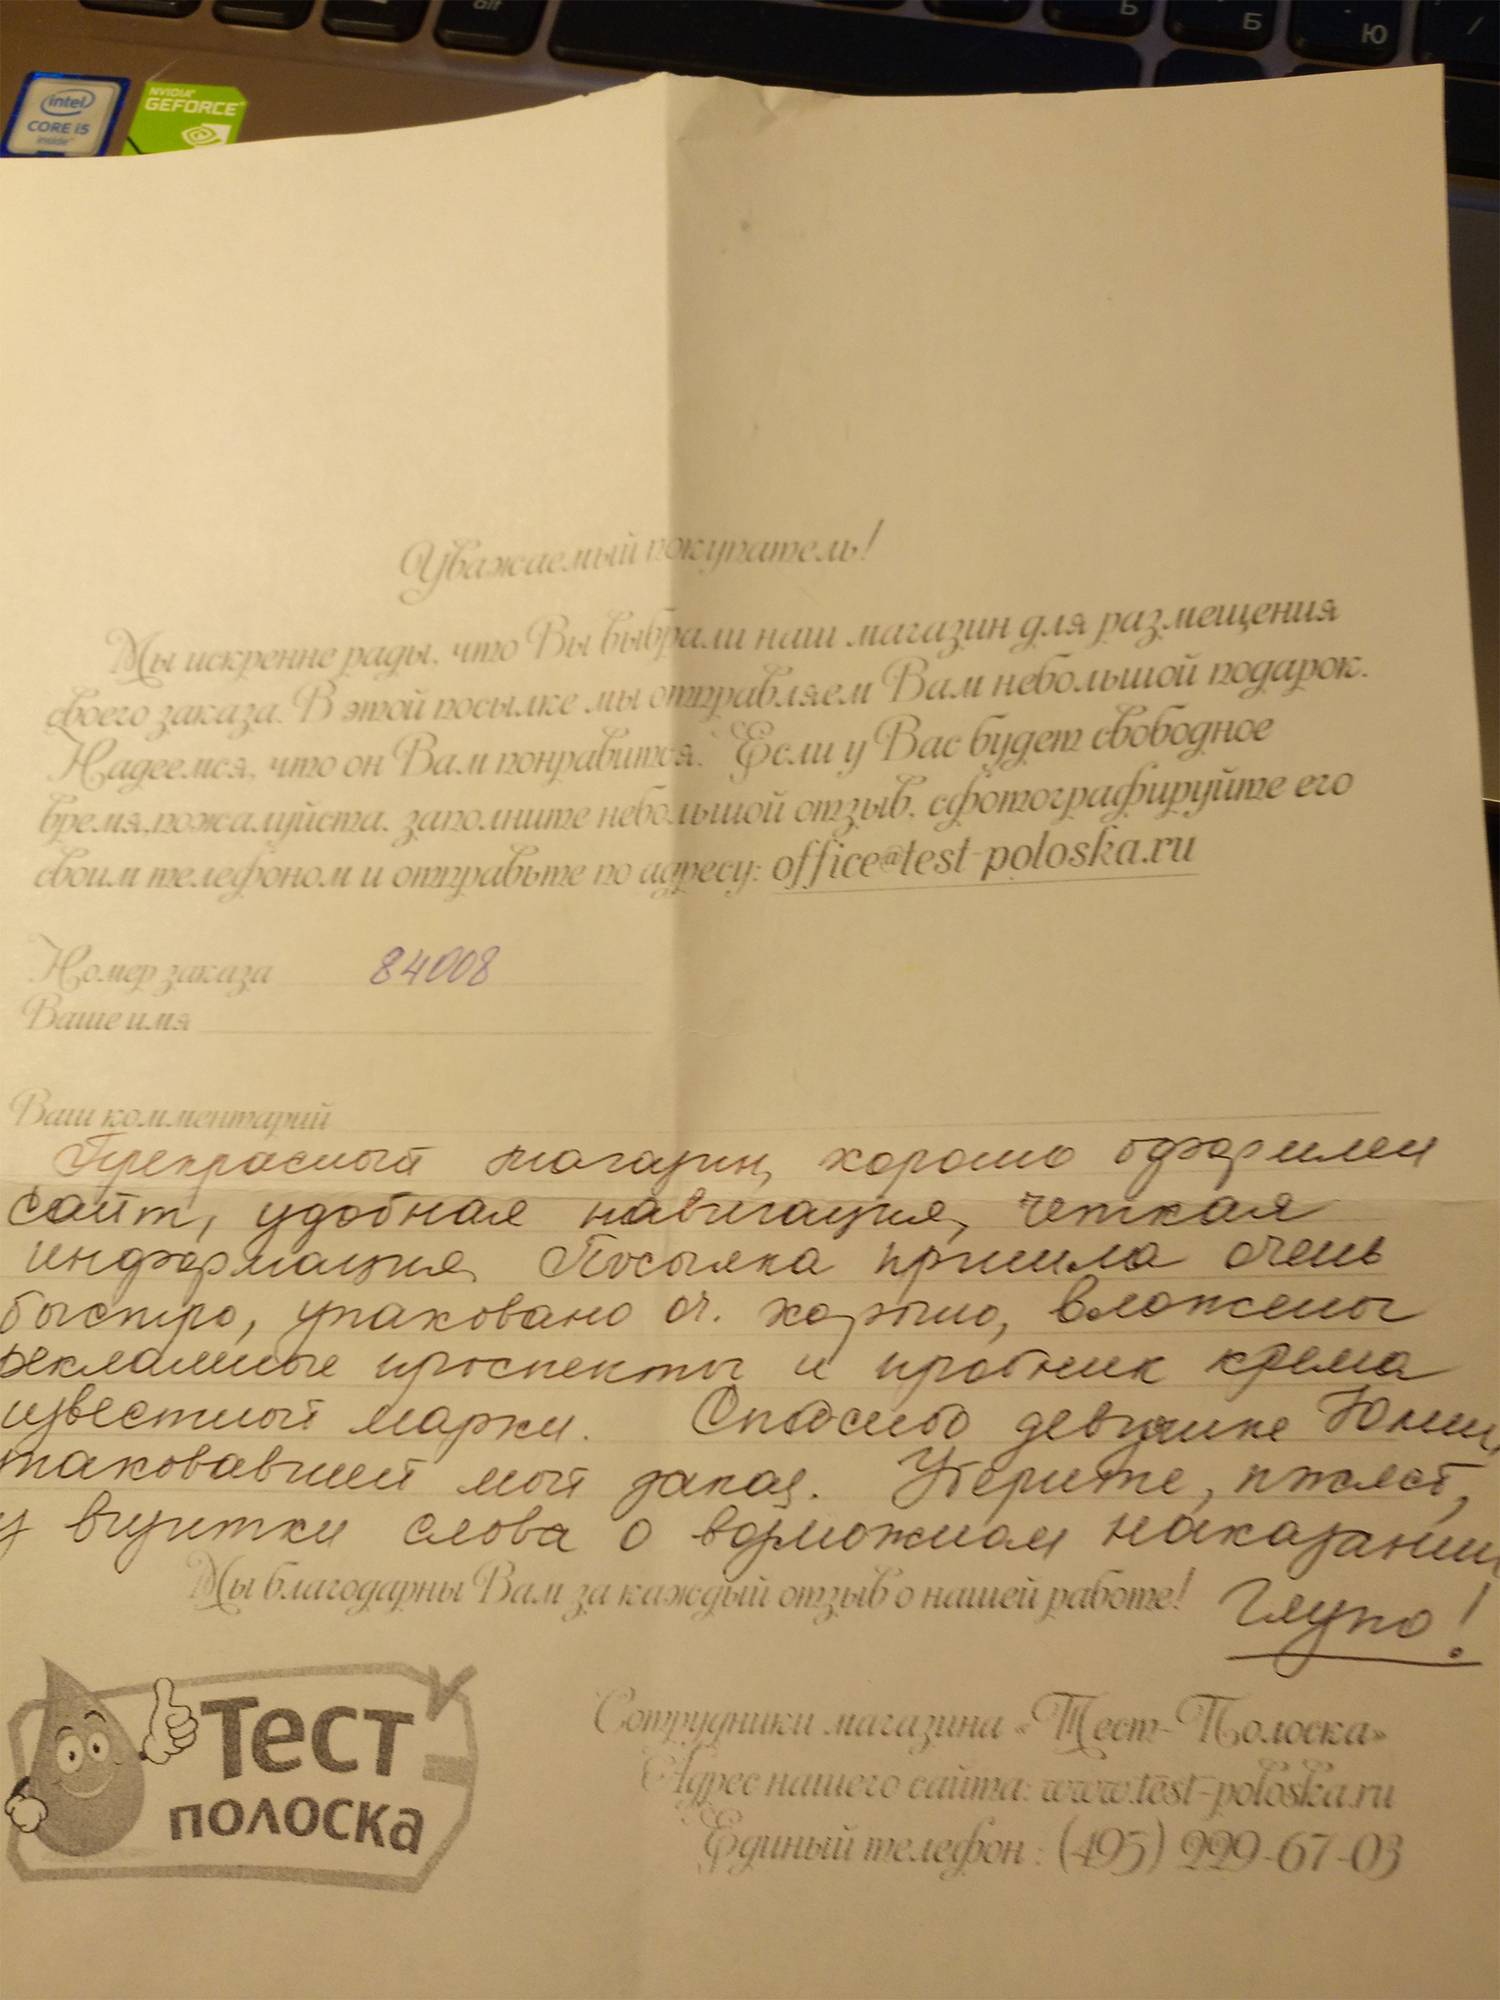 alt
Б
Ю
/
intel
CORE i5
inside
NVIDIA
GEFORCE
Уважаемый покупатель!
Мы искренне рады, что Вы выбрали наш магазин для размещения
своего заказа. В этой посылке мы отправляем Вам небольшой подарок.
Надеемся, что он Вам понравится. Если у Вас будет свободное
время,пожалуйста, заполните небольшой отзыв, сфотографируйте его
своим телефоном и отправьте по адресу: office@test-poloska.ru
Номер заказа 84008
Ваше имя
Ваш комментарий
Прекрасный магазин, хорошо оформлен
сайт, удобная навигация, четкая
информация. Посылка пришла очень
быстро, упаковано оч. хорошо, вложены
рекламные проспекты и пробник крема
известной марки. Спасибо девушке Юлии,
упаковавшей мой заказ. Уберите, пжлст,
у визитки слова о возможном наказании
Глупо!
Мы благодарны Вам за каждый отзыв о нашей работе!
Тест
полоска
Сотрудники магазина «Тест-Полоска»
Адрес нашего сайта: www.test-poloska.ru
Единый телефон : (495) 229-67-03